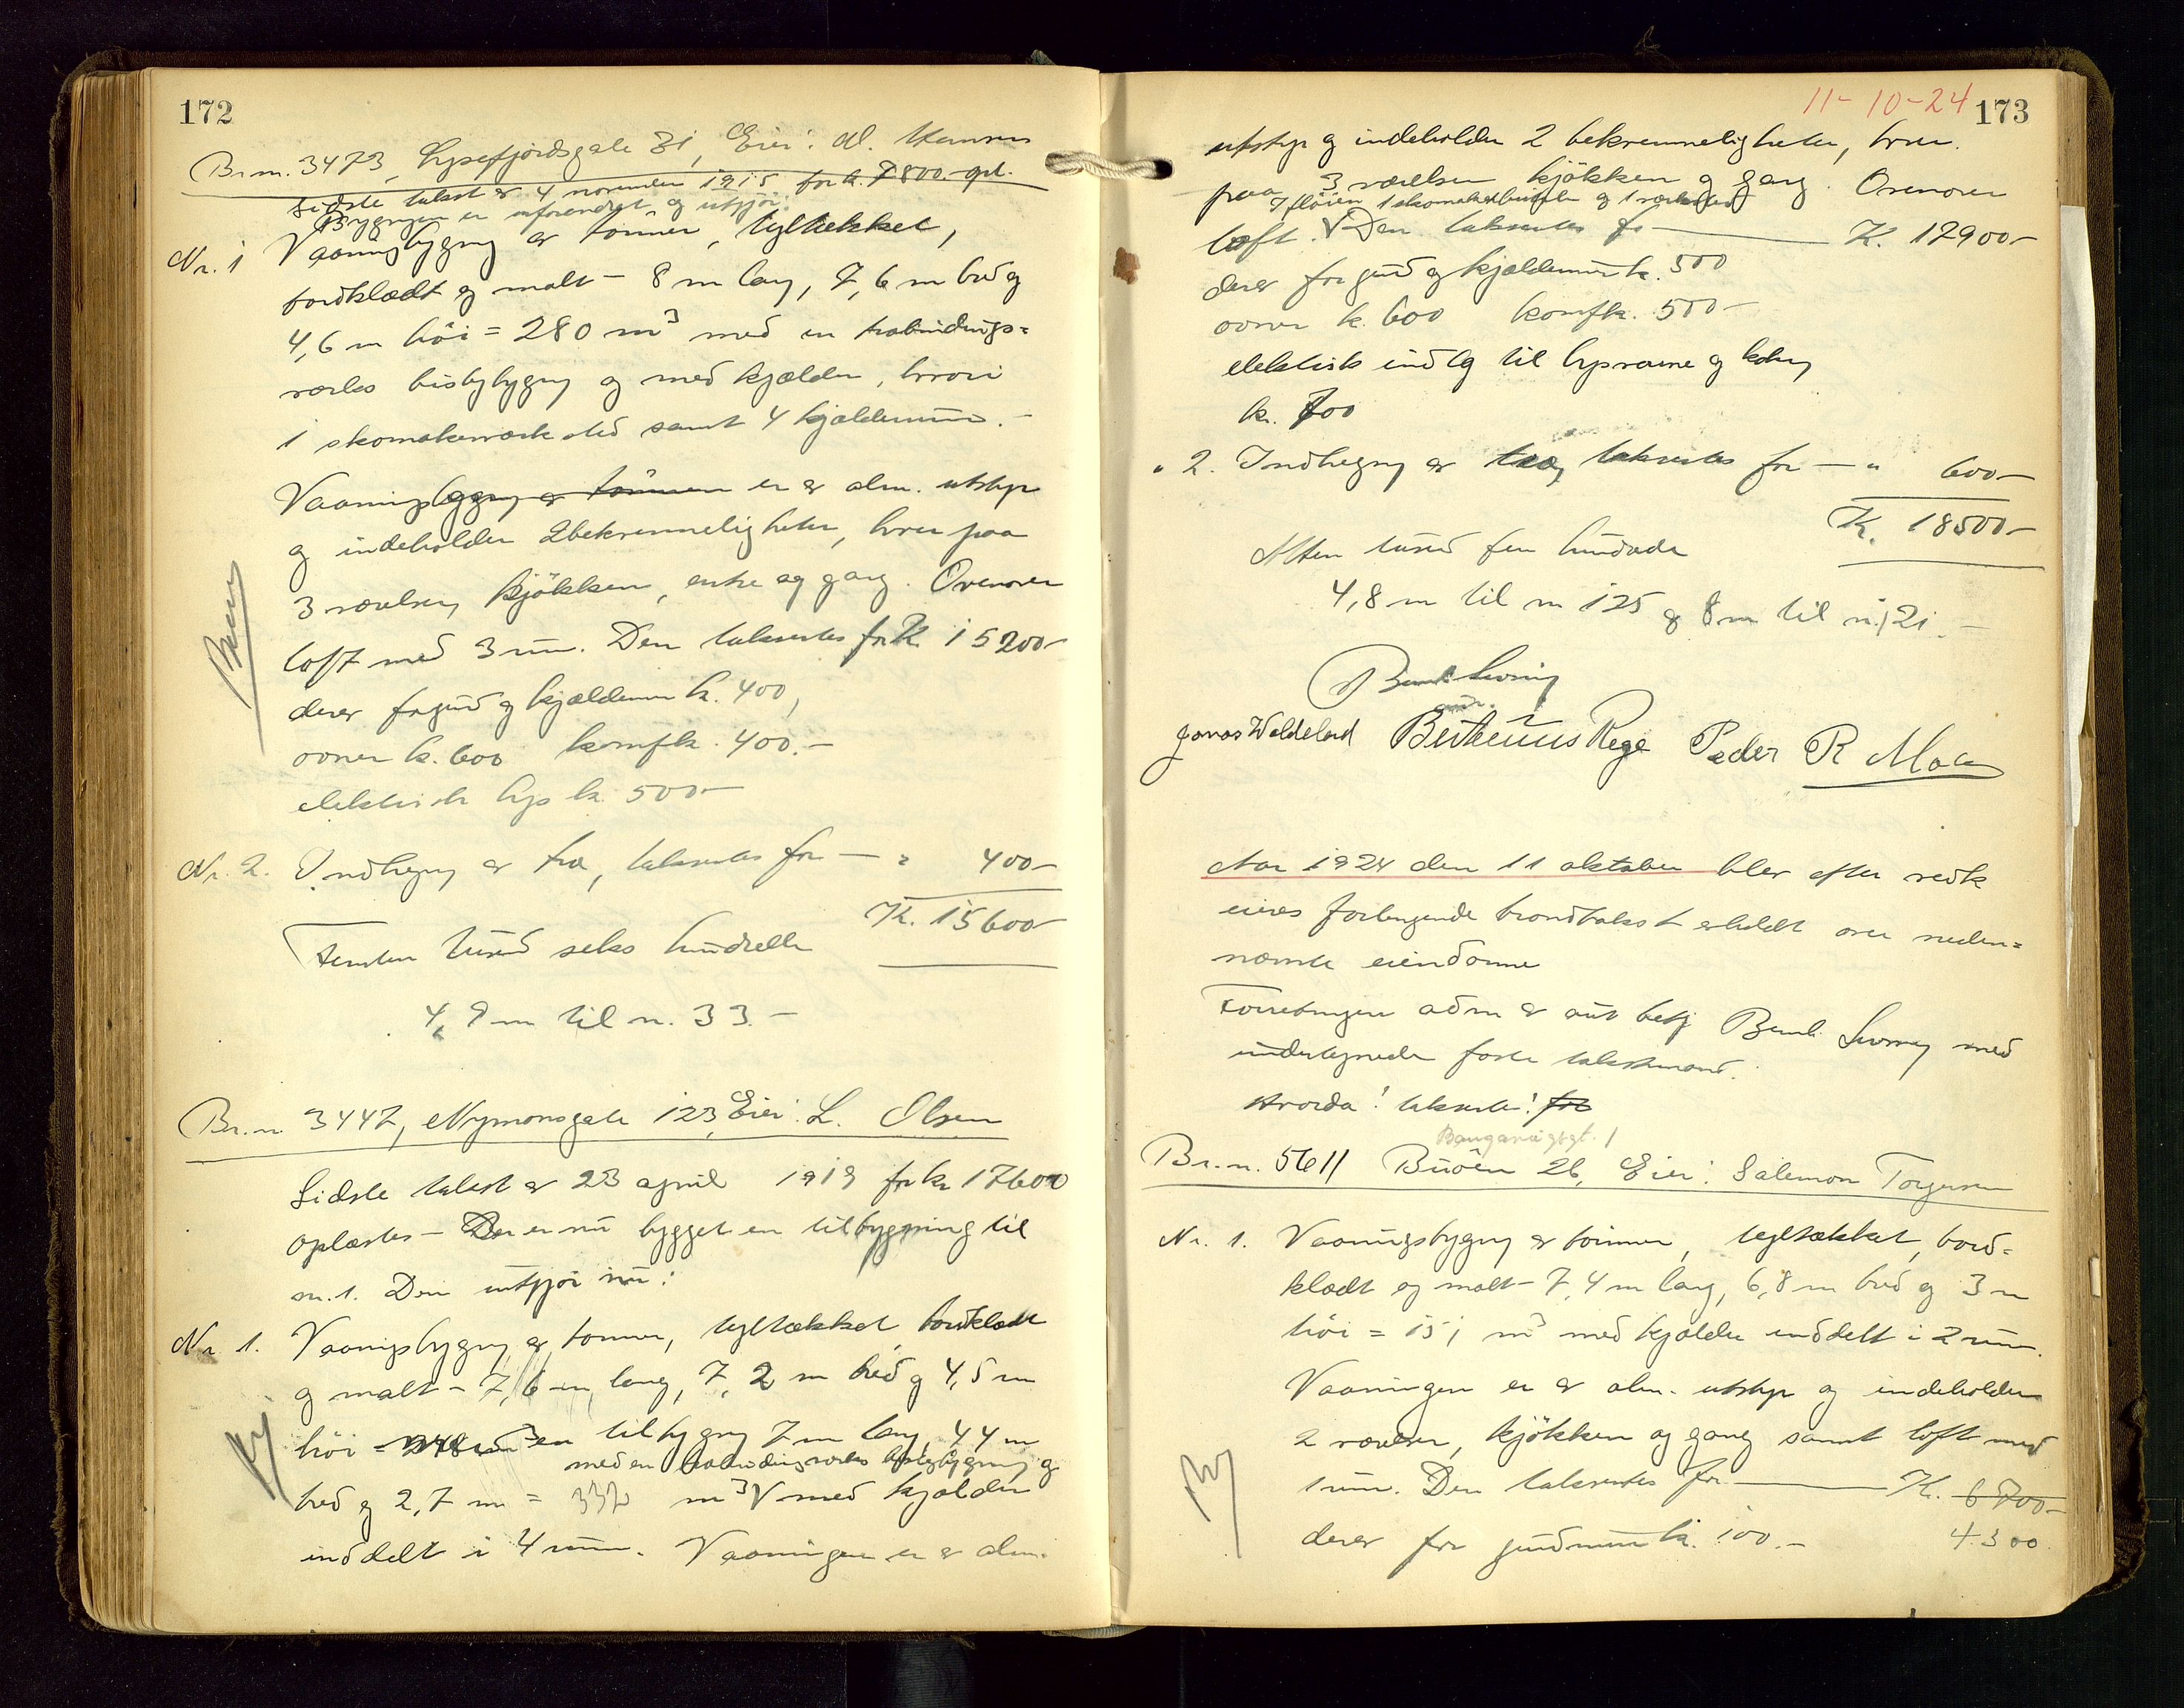 172
Br.nr. 3473, Lysefjordsgate 31, Eier: M. Hansen
Sidste takst er 4 november 1915 for k. 7800.- opl.
Bygningen er uforendret og utgjør:
Nr. 1 Vaaningsbygng er tømmer, tegltækket,
bordklædt og malt - 8 m lang, 7,6 m bred og
4,6 m høi = 280 m³ med en utbindings=
verks bislagbygng og med kjælder, hvori
1 skomakerverksted samt 4 kjælderrum.-
Vaaningsbygng er tømmer er av alm. utstyr
og indeholder 2 bekvemmeligheter, hver paa
3 værelser, kjøkken, entre og gang. Ovenover
loft med 3 rum. Den takseres for K. 15200-
derav for grund og kjældermur k. 400,
ovner k. 600 komf k. 400.-
elektrisk lys k. 500-
Nr. 2. Indhegng av træ, takseres for - " 400-
K. 15600-
Femten tusend seks hundrede
4,9 m til n. 33.-
Br.n. 3447, Nymansgate 123, Eier: L. Olsen
Sidste takst er 23 april 1919 for kr 17600
oplæstes - Der er nu bygget en tilbygning til
n. 1. Den utgjør nu:
Nr 1. Vaaningsbygng er tømmer, tegltækket, bordklædt
og malt - 7,6 m lang, 7,2 m bred og 4,5 m
høi = 248 m³ en tilbygng 7 m lang, 4,4 m
med en utbindingsverks bislagbygning og
bred og 2,7 m = 332 m³ V med kjælder
inddelt i 4 rum. Vaaningen er av alm.
11-10-24 173
utstyr og indeholder 2 bekvemmeligheter, hver
paa 3 værelser kjøkken og gang. Ovenover
I fløien 1 skomakerbutik og 1 verksted
loft. V Den takseres for K. 17900-
derav for grund og kjældermur k. 500
ovner k. 600 komf k. 500-
elektrisk indlg til lys varme og kokng
kr. 700
" 2. Indhegng av træ, takseres for - " 600-
K. 18500-
Atten tusend fem hundrede
4,8 m til n 125 og 8 m til n. 121.-
Bernh Svoring
Jonas Waldeland Bertheus Rege Peder R Moe
Aar 1924 den 11 oktober blev efter vedk
eieres forlangende brandtakst avholdt over neden=
nævnte eiendomme
Forretningen adm av aut betj Bernh. Svoring med
undertegnede faste takstmænd.
Hvorda: takserte: for
Bangarvigsgt. 1
Br.n. 5611 Buøen 26, Eier: Salemon Torgersen
Nr. 1. Vaaningsbygng er tømmer, tegltækket, bord=
klædt og malt - 7,4 m lang, 6,8 m bred og 3 m
høi = 151 m³ med kjælder inddelt i 2 rum.
Vaaningen er av alm. utstyr og indeholder
2 værelser, kjøkken og gang samt loft med
1 rum. Den takseres for K. 6700-
derav for grundmur k. 100.- 4300